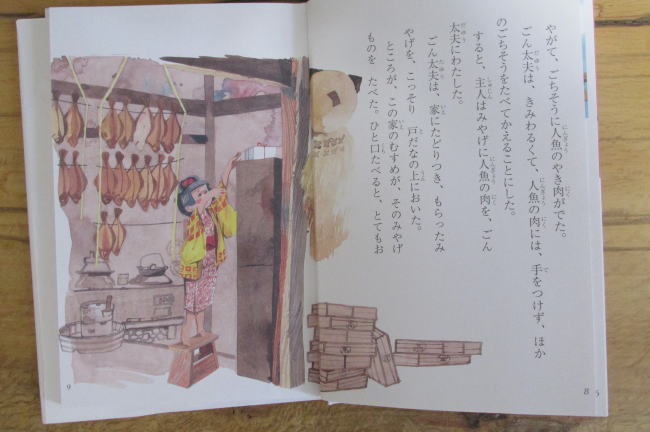 やがて、ごちそうに人魚のやき肉がでた。
ごん太夫は、きみわるくて、人魚の肉には、手をつけず、ほか
のごちそうをたべてかえることにした。
すると、主人はみやげに人魚の肉を、ごん
太夫にわたした。
ごん太夫は、家にたどりつき、もらったみ
やげを、こっそり 戸だなの上においた。
ところが、この家のむすめが、そのみやげ
ものを たべた。ひと口たべると、とてもお
8
9